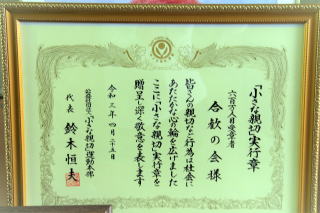 「小さな親切」実行章
六百万人目受章者
合歓の会様
皆さんの親切な行為は社会に
あたたかな心の輪を広げました
ここに「小さな親切」実行章を
贈呈し深く敬意を表します
令和三年四月二十五日
公益社団法人「小さな親切」運動本部
代表 鈴木恒夫